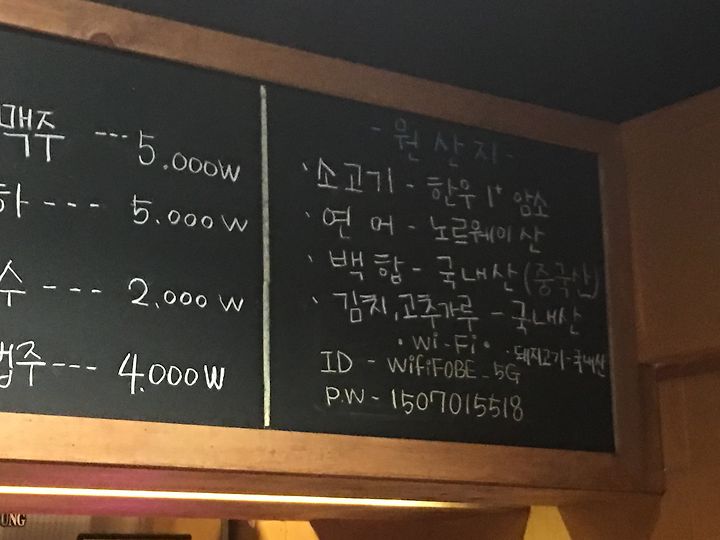 맥주 --- 5.000W
하 --- 5.000W
수 --- 2.000W
법주 --- 4.000W
- 원산지 -
· 소고기 - 한우 1⁺ 암소
· 연어 - 노르웨이산
· 백합 - 국내산 (중국산)
· 김치, 고추가루 - 국내산
· Wi-Fi · · 돼지고기 - 국내산
ID - WifiFOBE_5G
P.W - 1507015518
UNG